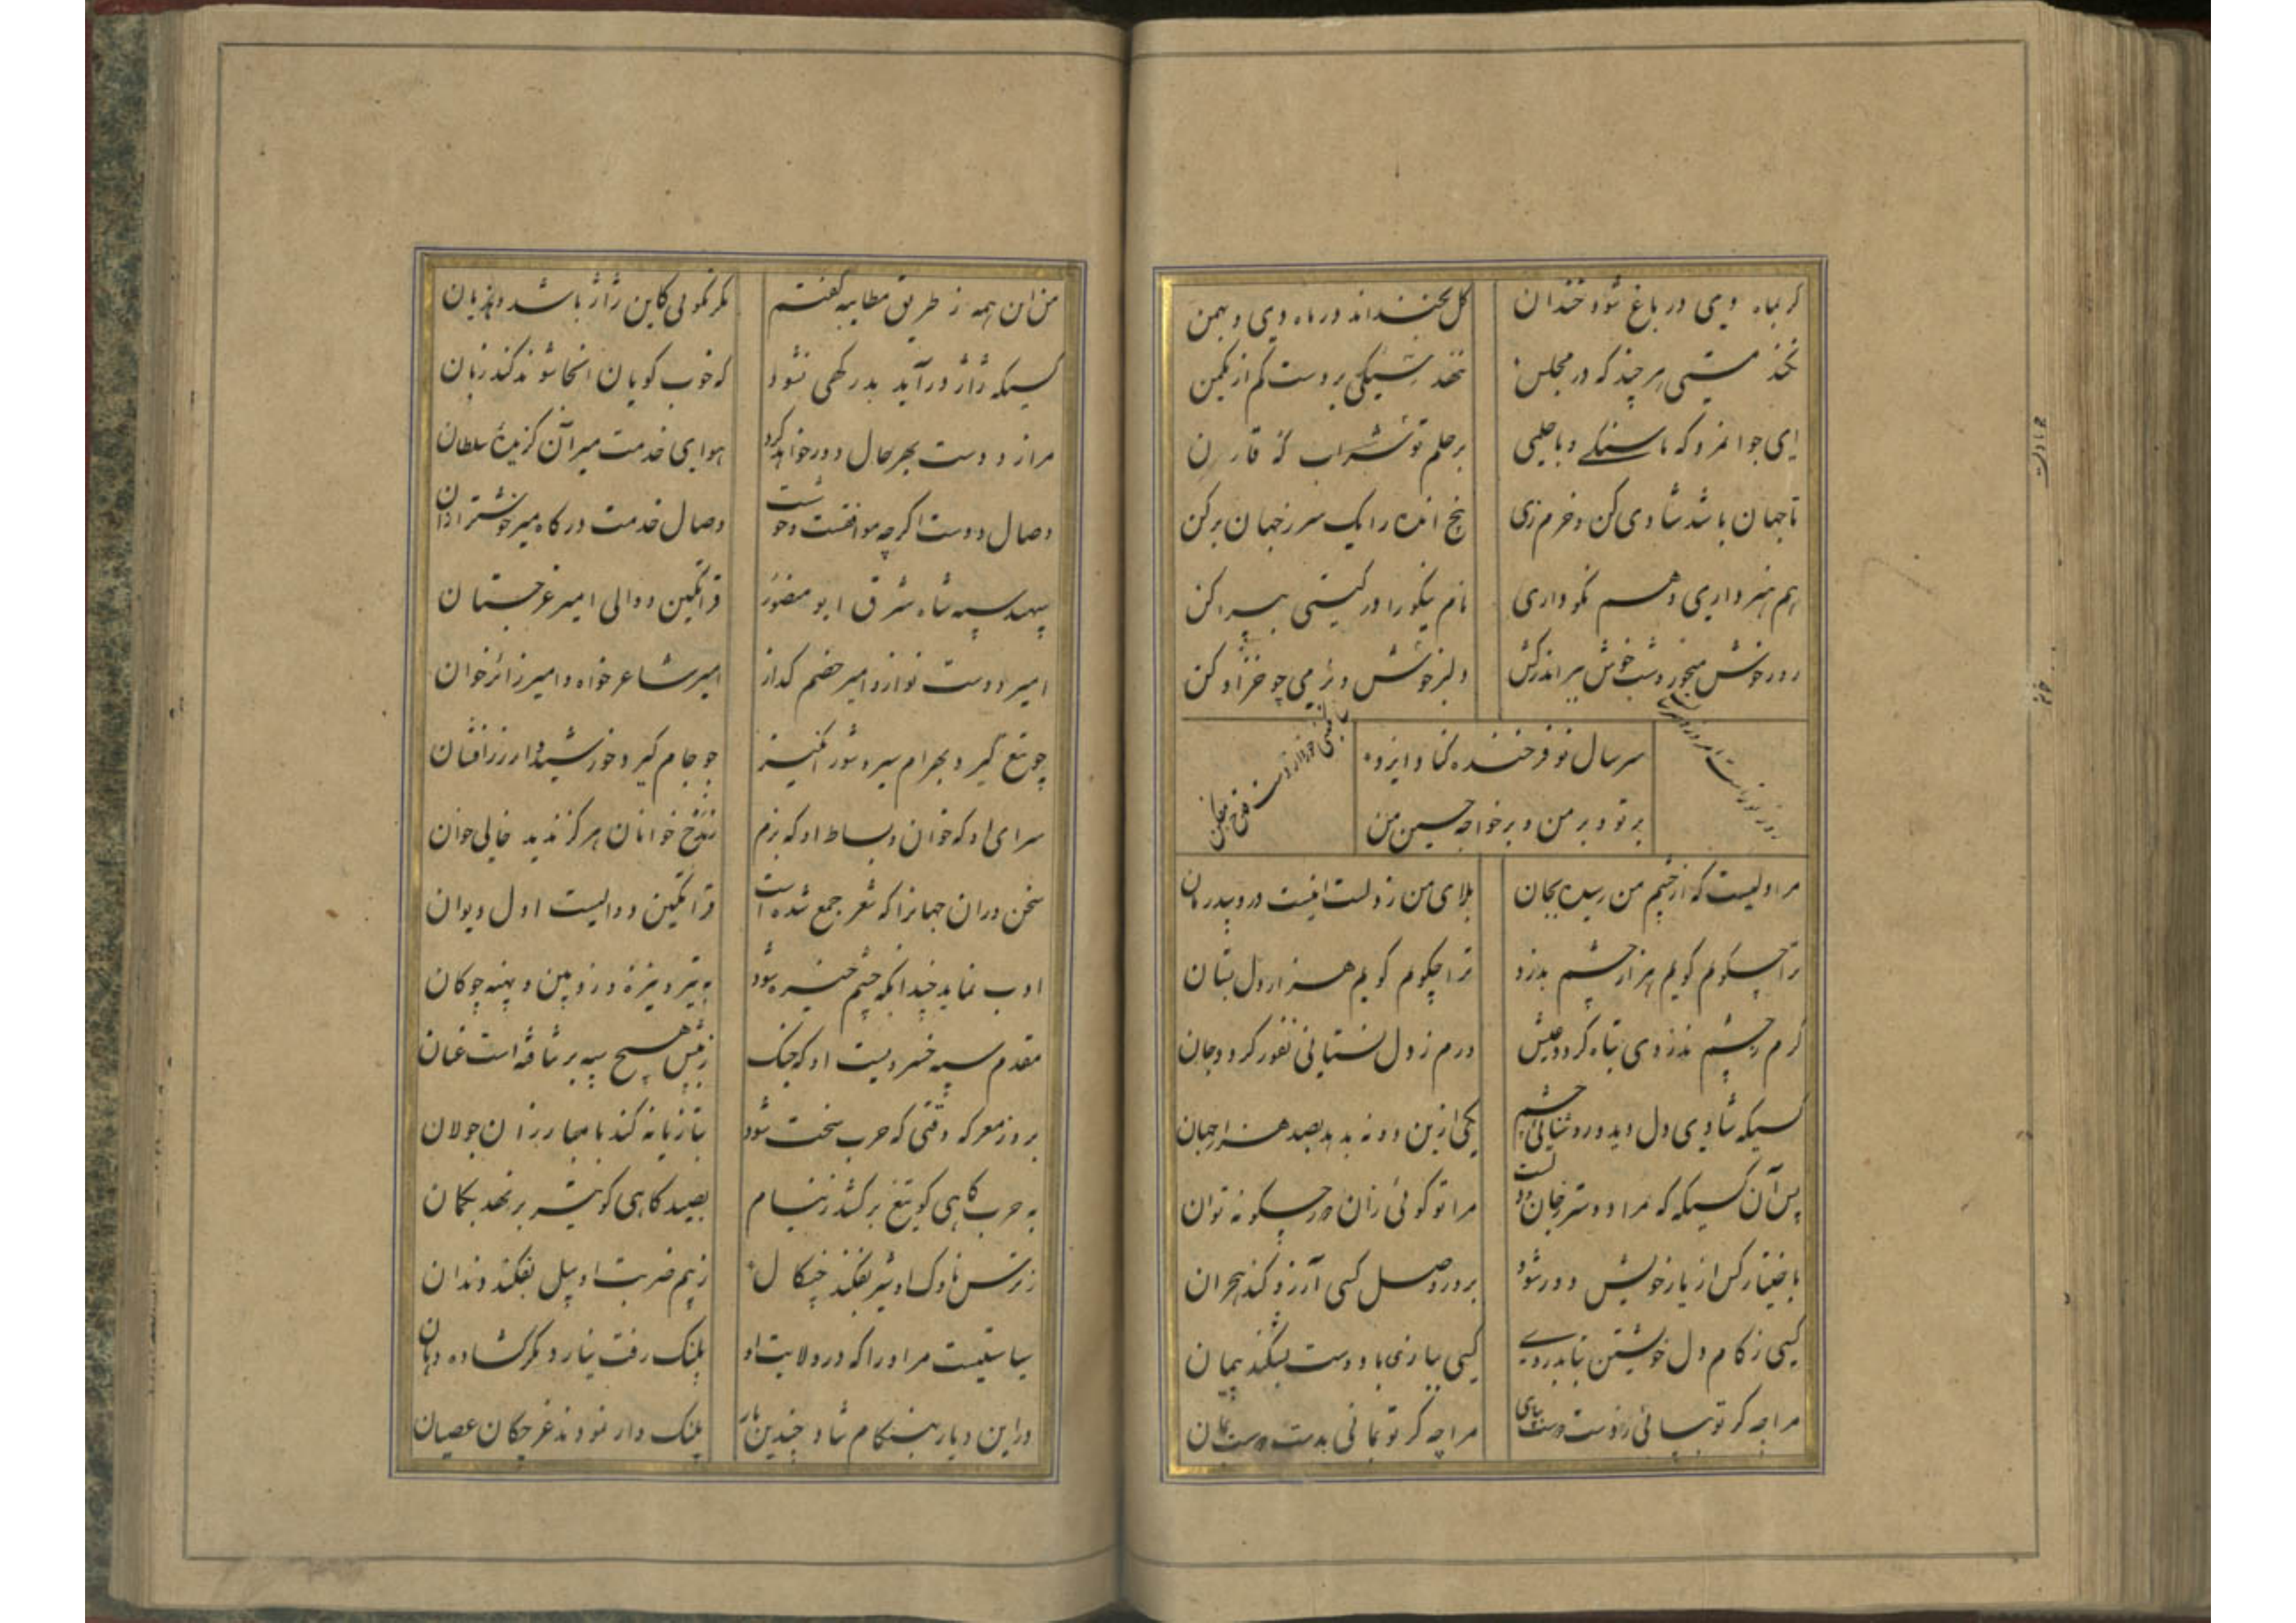 گر بماه دی در باغ شود خندان
گل بخنداند در ماه دی و بهمن
نکند مستی هر چند که در مجلس
ننهد سیکی بر دست کم از یکمن
ای جوانمرد که با سنگی و با حلمی
بر حلم تو
تا جهان باشد شادی کن و خرم زی
بیخ انده را یک سر ز جهان برکن
هم هنر داری و هم نکو داری
نام نیکو را در گیتی بپراکن
روز خوش میخور و شب خوش ببر اندر کش
دلبر خوش
سر سال نو فرخنده کناد ایزد
بر تو و بر من و بر خواجه حسین من
مرا دلیست که از چشم من رسیده بجان
بلای من ز دلست اینت درد بیدرمان
ترا چگویم گویم هزار چشم بدزد
ترا چگویم گویم هزار دل بستان
گرم ز چشم بدزدی تباه گردد عیش
ورم ز دل نستانی نفور گردد جان
کسیکه شادی دل دید و روشنائی چشم
یکی ازین دو نه بدهد بصد هزار جهان
پس آن کسیکه مرا دوستر ز جان و دلست
مرا تو گوئی زان در چگونه توان
باختیار کس از یار خویش دور شود
بروز وصل کسی آرزو کند هجران
کسی ز کام دل خویشتن بتابد روی
کسی ببازی با دوست بشکند پیمان
مرا چه گر تو بیائی ز دوست دست بپای
مرا چه گر تو نمانی بدست دوست بمان
من این همه ز طریق مطایبه گفتم
مگر نگوئی کاین ژاژ باشد و هذیان
کسیکه ژاژ درآید بدرگهی نشود
که خوب گویان آنجا شوند کند زبان
مرا ز دوست بهر حال دور خواهد کرد
هوای خدمت میر آن گزیدهٔ سلطان
وصال دوست اگر چه موافقست و خوشست
وصال خدمت درگاه میر خوشتر از آن
سپهبد سپه شاه شرق ابو منصور
قراتکین دوالی امیر غرجستان
امیر دوست نواز و امیر خصم گداز
امیر شاعر خواه و امیر زائر خوان
چو تیغ گیرد بهرام سیر و شور انگیز
چو جام گیرد خورشیدوار زر افشان
سرای او که خوان و بساط او که بزم
ندید هرگز خالی
سخن وران جهانرا که شعر جمع شده است
قراتکین دوالیست اول دیوان
ادب نماید چندانکه چشم خیره شود
به تیر و نیزه و زوبین و پهنه و چوگان
مقدم سپه خسرویست او که جنگ
ز پیش هیچ سپه بر نتافته است عنان
بروز معرکه وقتی که حرب سخت شود
بتازیانه کند با مبارزان جولان
به حرب گاهی کو تیغ برکشد ز نیام
بصید گاهی کو تیر بر نهد بکمان
ز ترس ناوک او شیر بفکند چنگال
ز بیم ضربت او پیل بفکند دندان
سیاستیست مر او را که در ولایت او
پلنگ رفت نیارد مگر گشاده دهان
در این دیار بهنگام شار چندین بار
پلنگ وار نمودند غرچگان عصیان